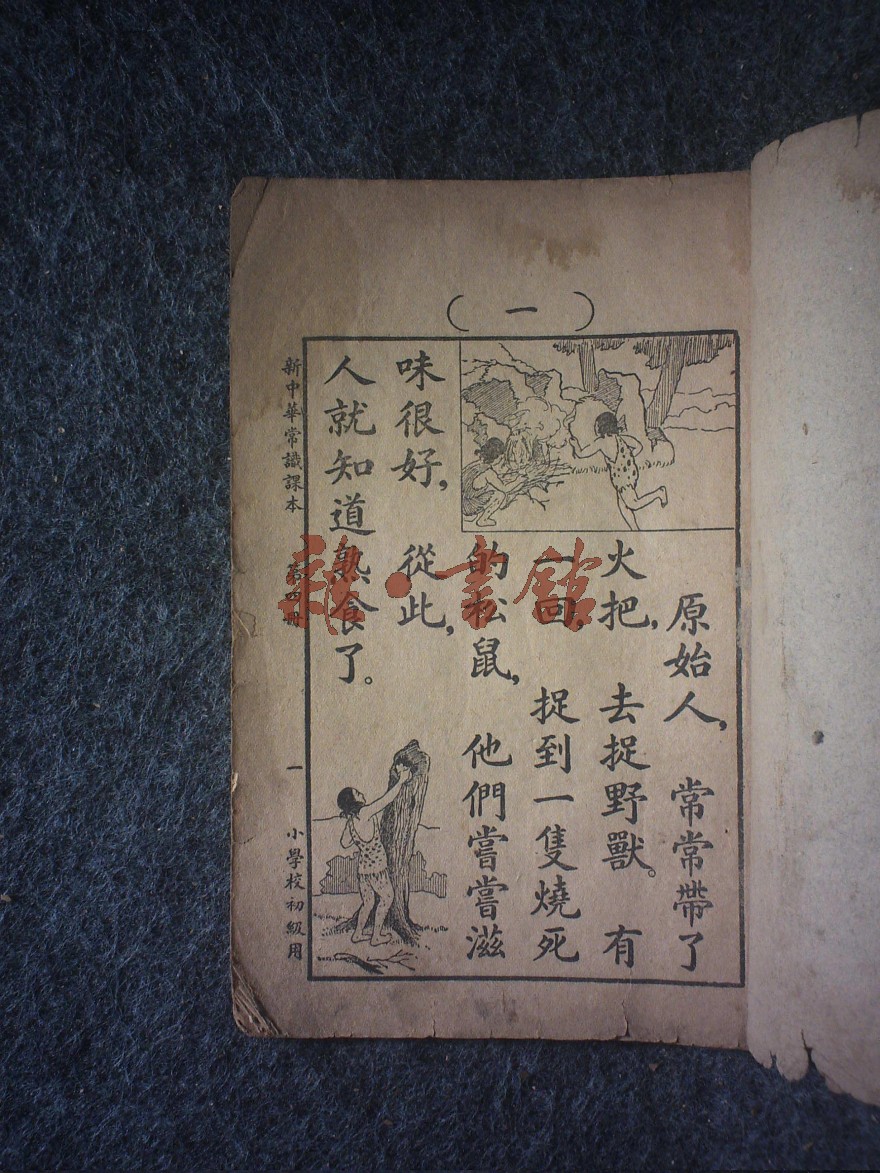 （一）
原始人，常常帶了
火把，去捉野獸。有
一回，捉到一隻燒死
的松鼠，他們嘗嘗滋
味很好，從此，
人就知道熟食了。
新中華常識課本 第四冊 一 小學校初級用